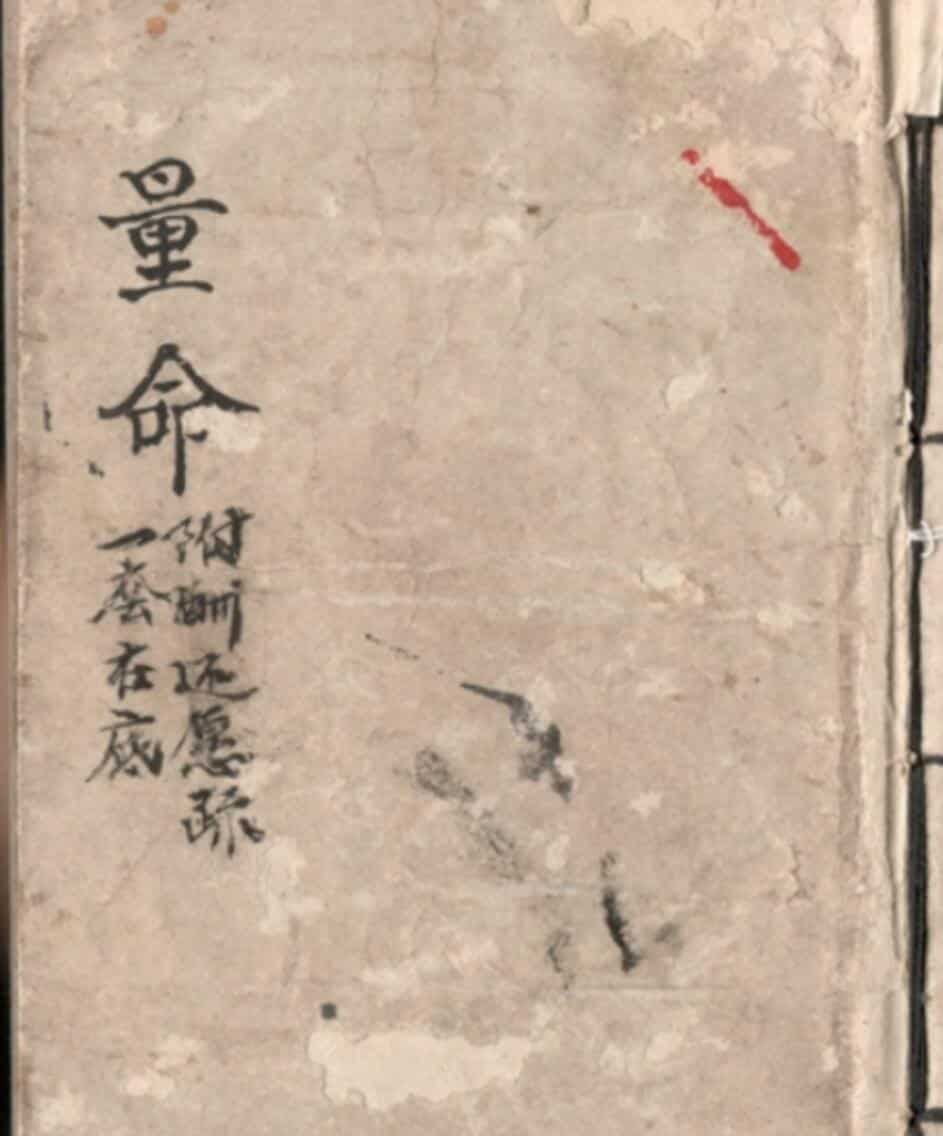 量命
附酬还愿疏
一叁在底